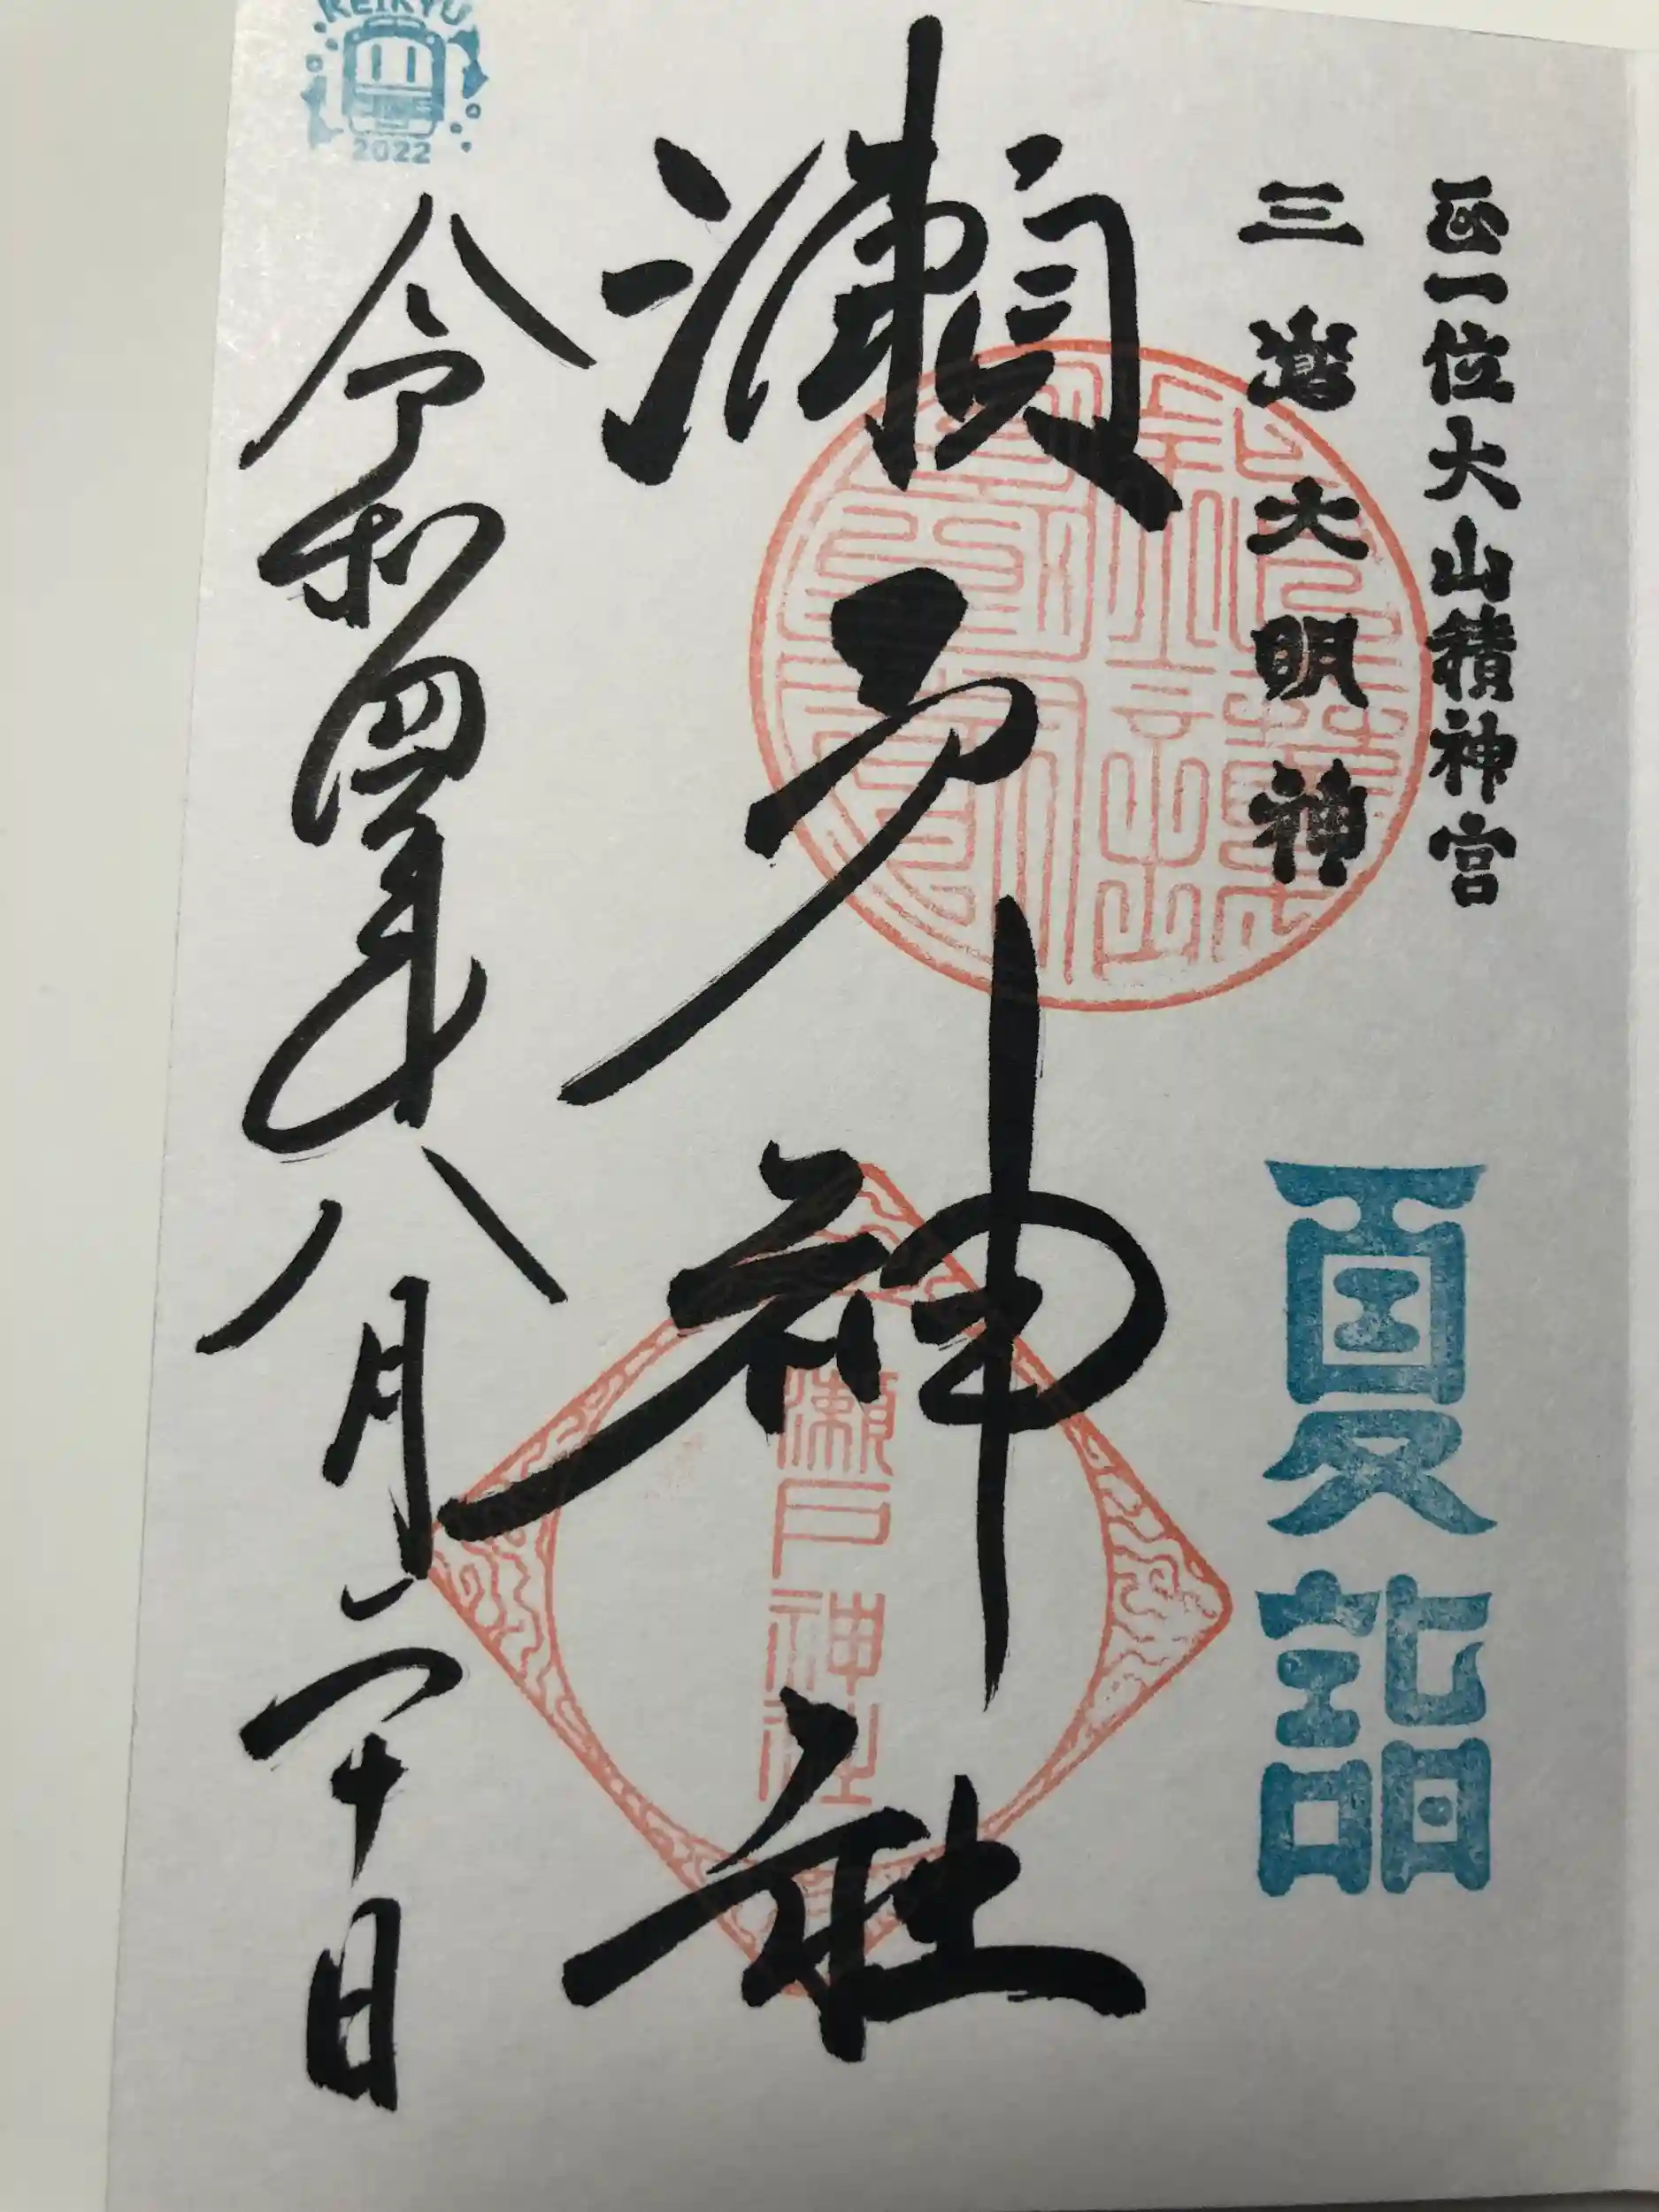 正一位大山積神宮
三嶌大明神
夏詣
瀬戸神社
瀬戸神社
令和四年八月二十日
KEIKYU
2022